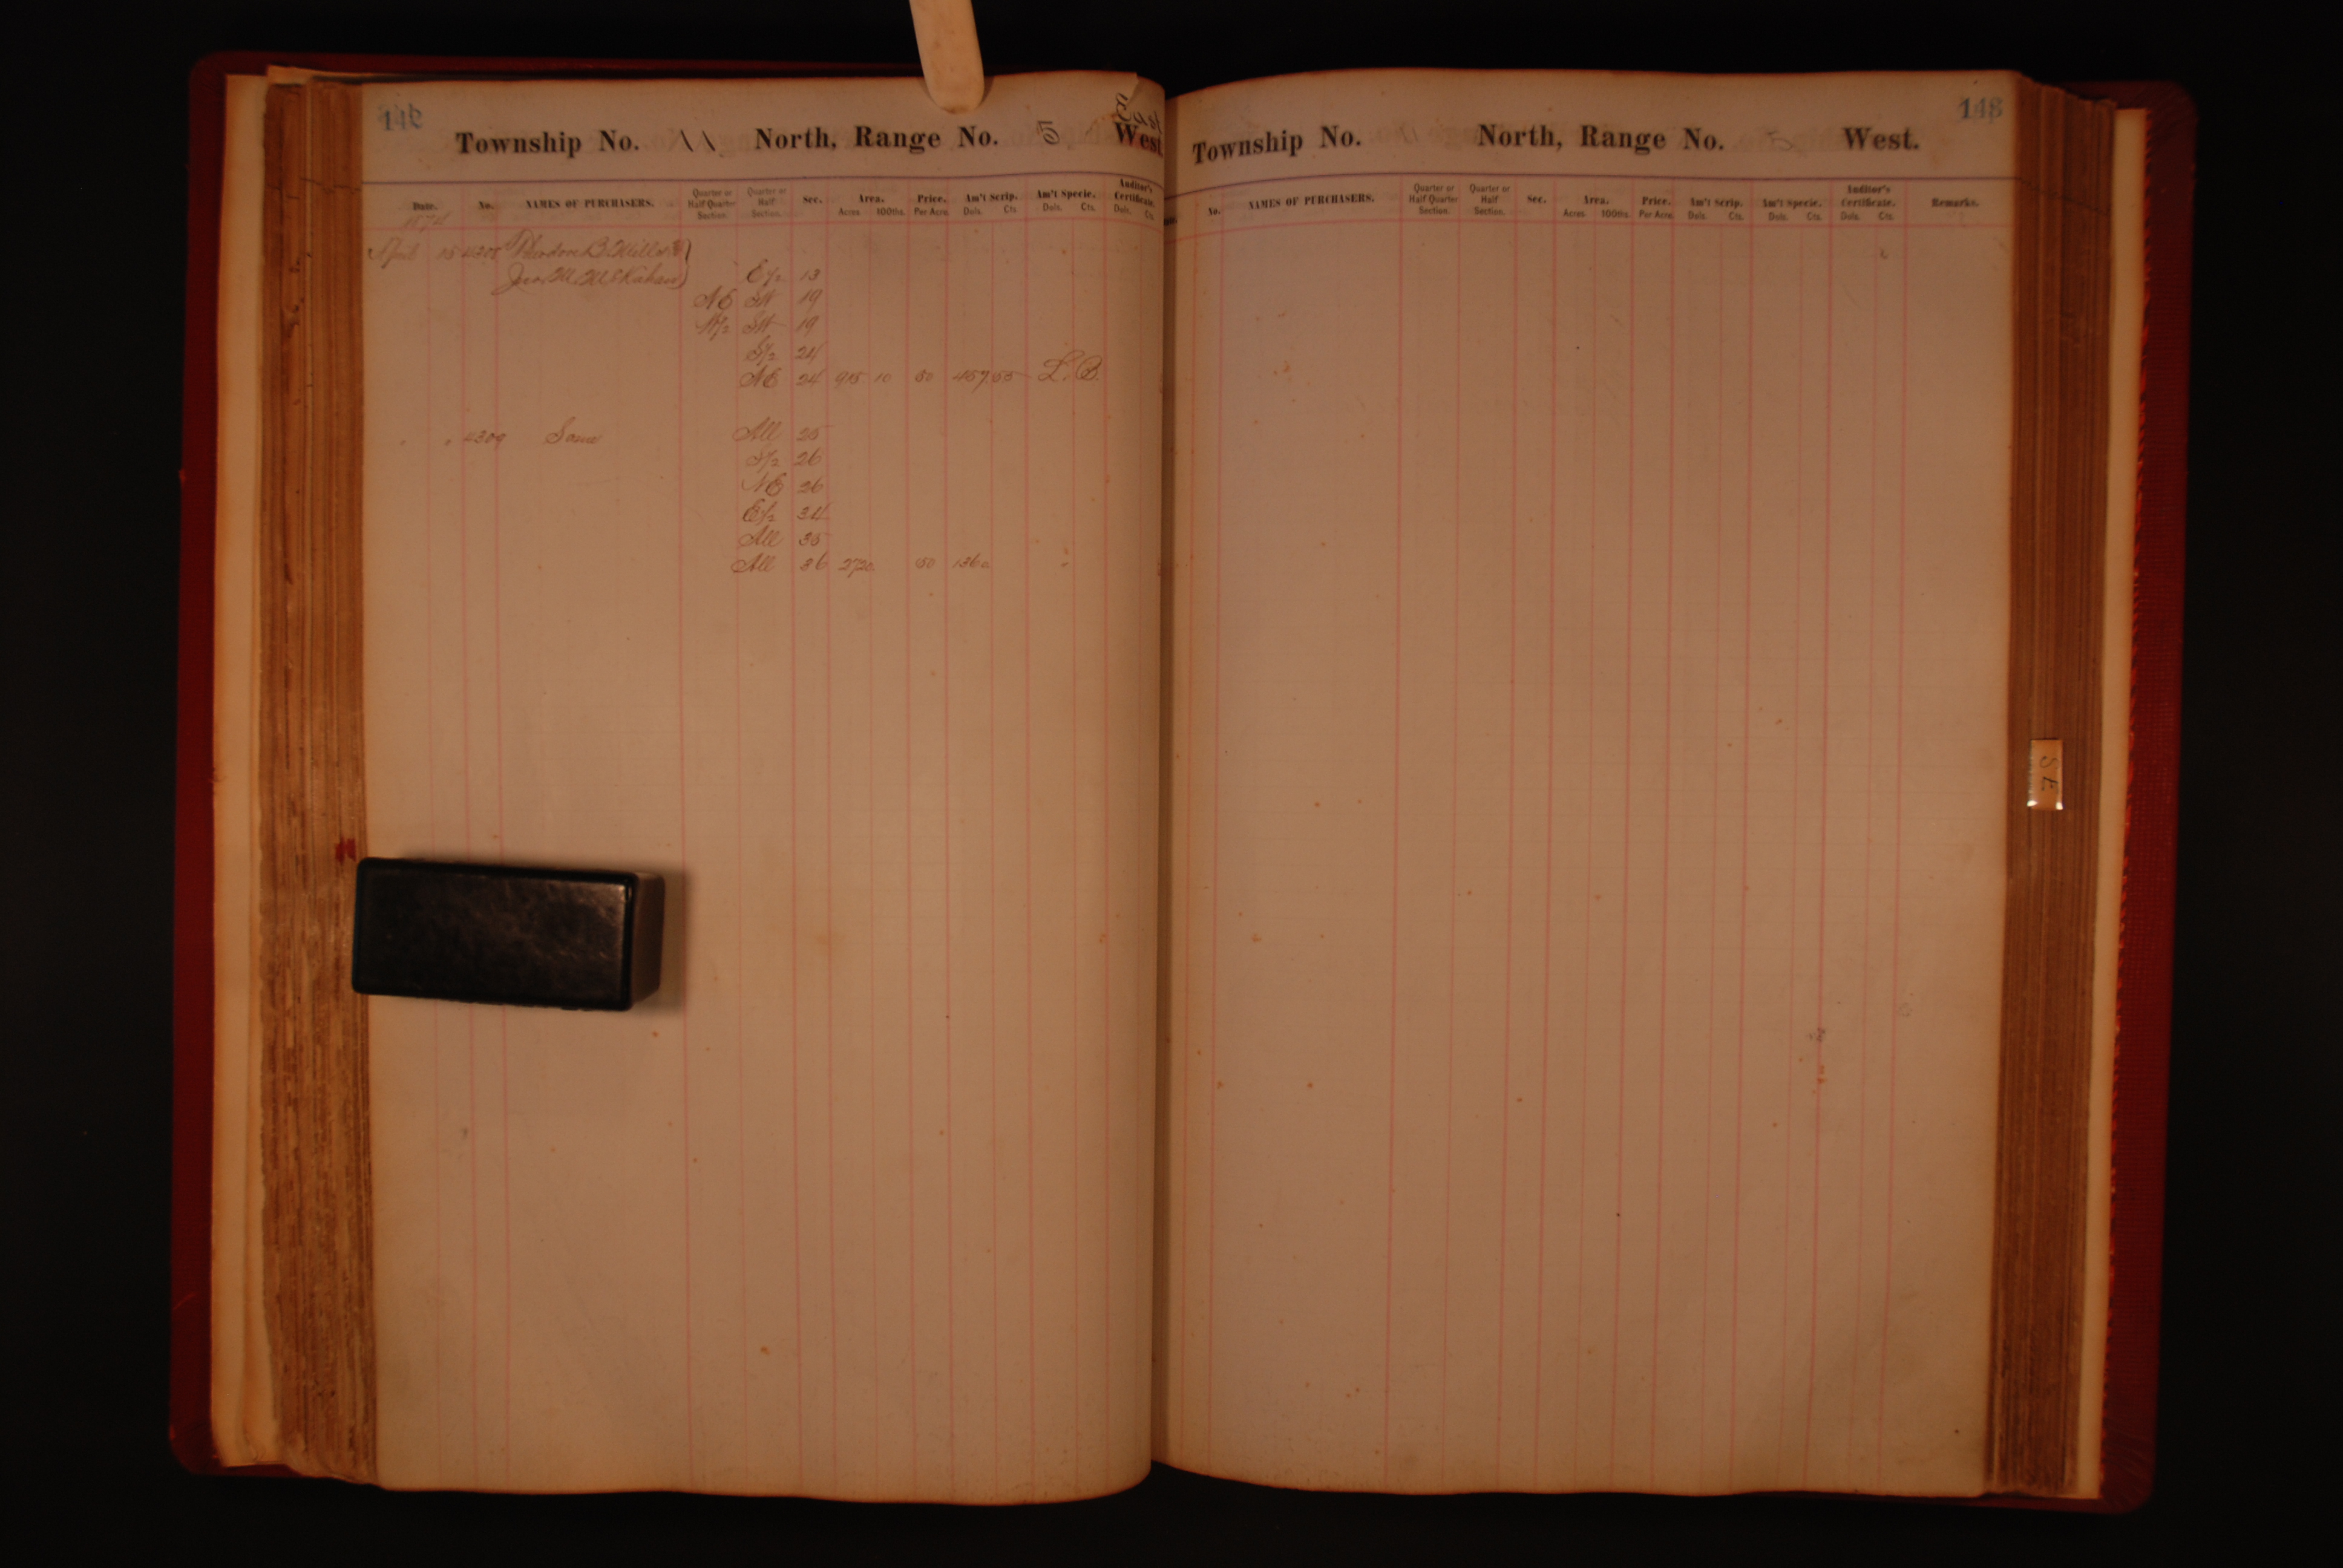 142
East
Township No. 11 North, Range No. 5 West.
Date. No. NAMES OF PURCHASERS. Quarter or Half Quarter Section. Quarter or Half Section. Sec. Area. Acres 100ths. Price. Per Acre. Am't Scrip. Dols. Cts. Am't Specie. Dols. Cts. Auditor's Certificate. Dols. Cts.
1874
April 15 4308 Theodore B.
Jno. M. E½ 13
NE SW 19
W½ SW 19
S½ 24
NE 24 915 10 50 457.55 L.B.
" " 4309 Same All 25
S½ 26
NE 26
E½ 34
All 35
All 36 2720 50 1360 "
148
Township No. North, Range No. West.
No. NAMES OF PURCHASERS. Quarter or Half Quarter Section. Quarter or Half Section. Sec. Area. Acres 100ths. Price. Per Acre. Am't Scrip. Dols. Cts. Am't Specie. Dols. Cts. Auditor's Certificate. Dols. Cts. Remarks.
SE